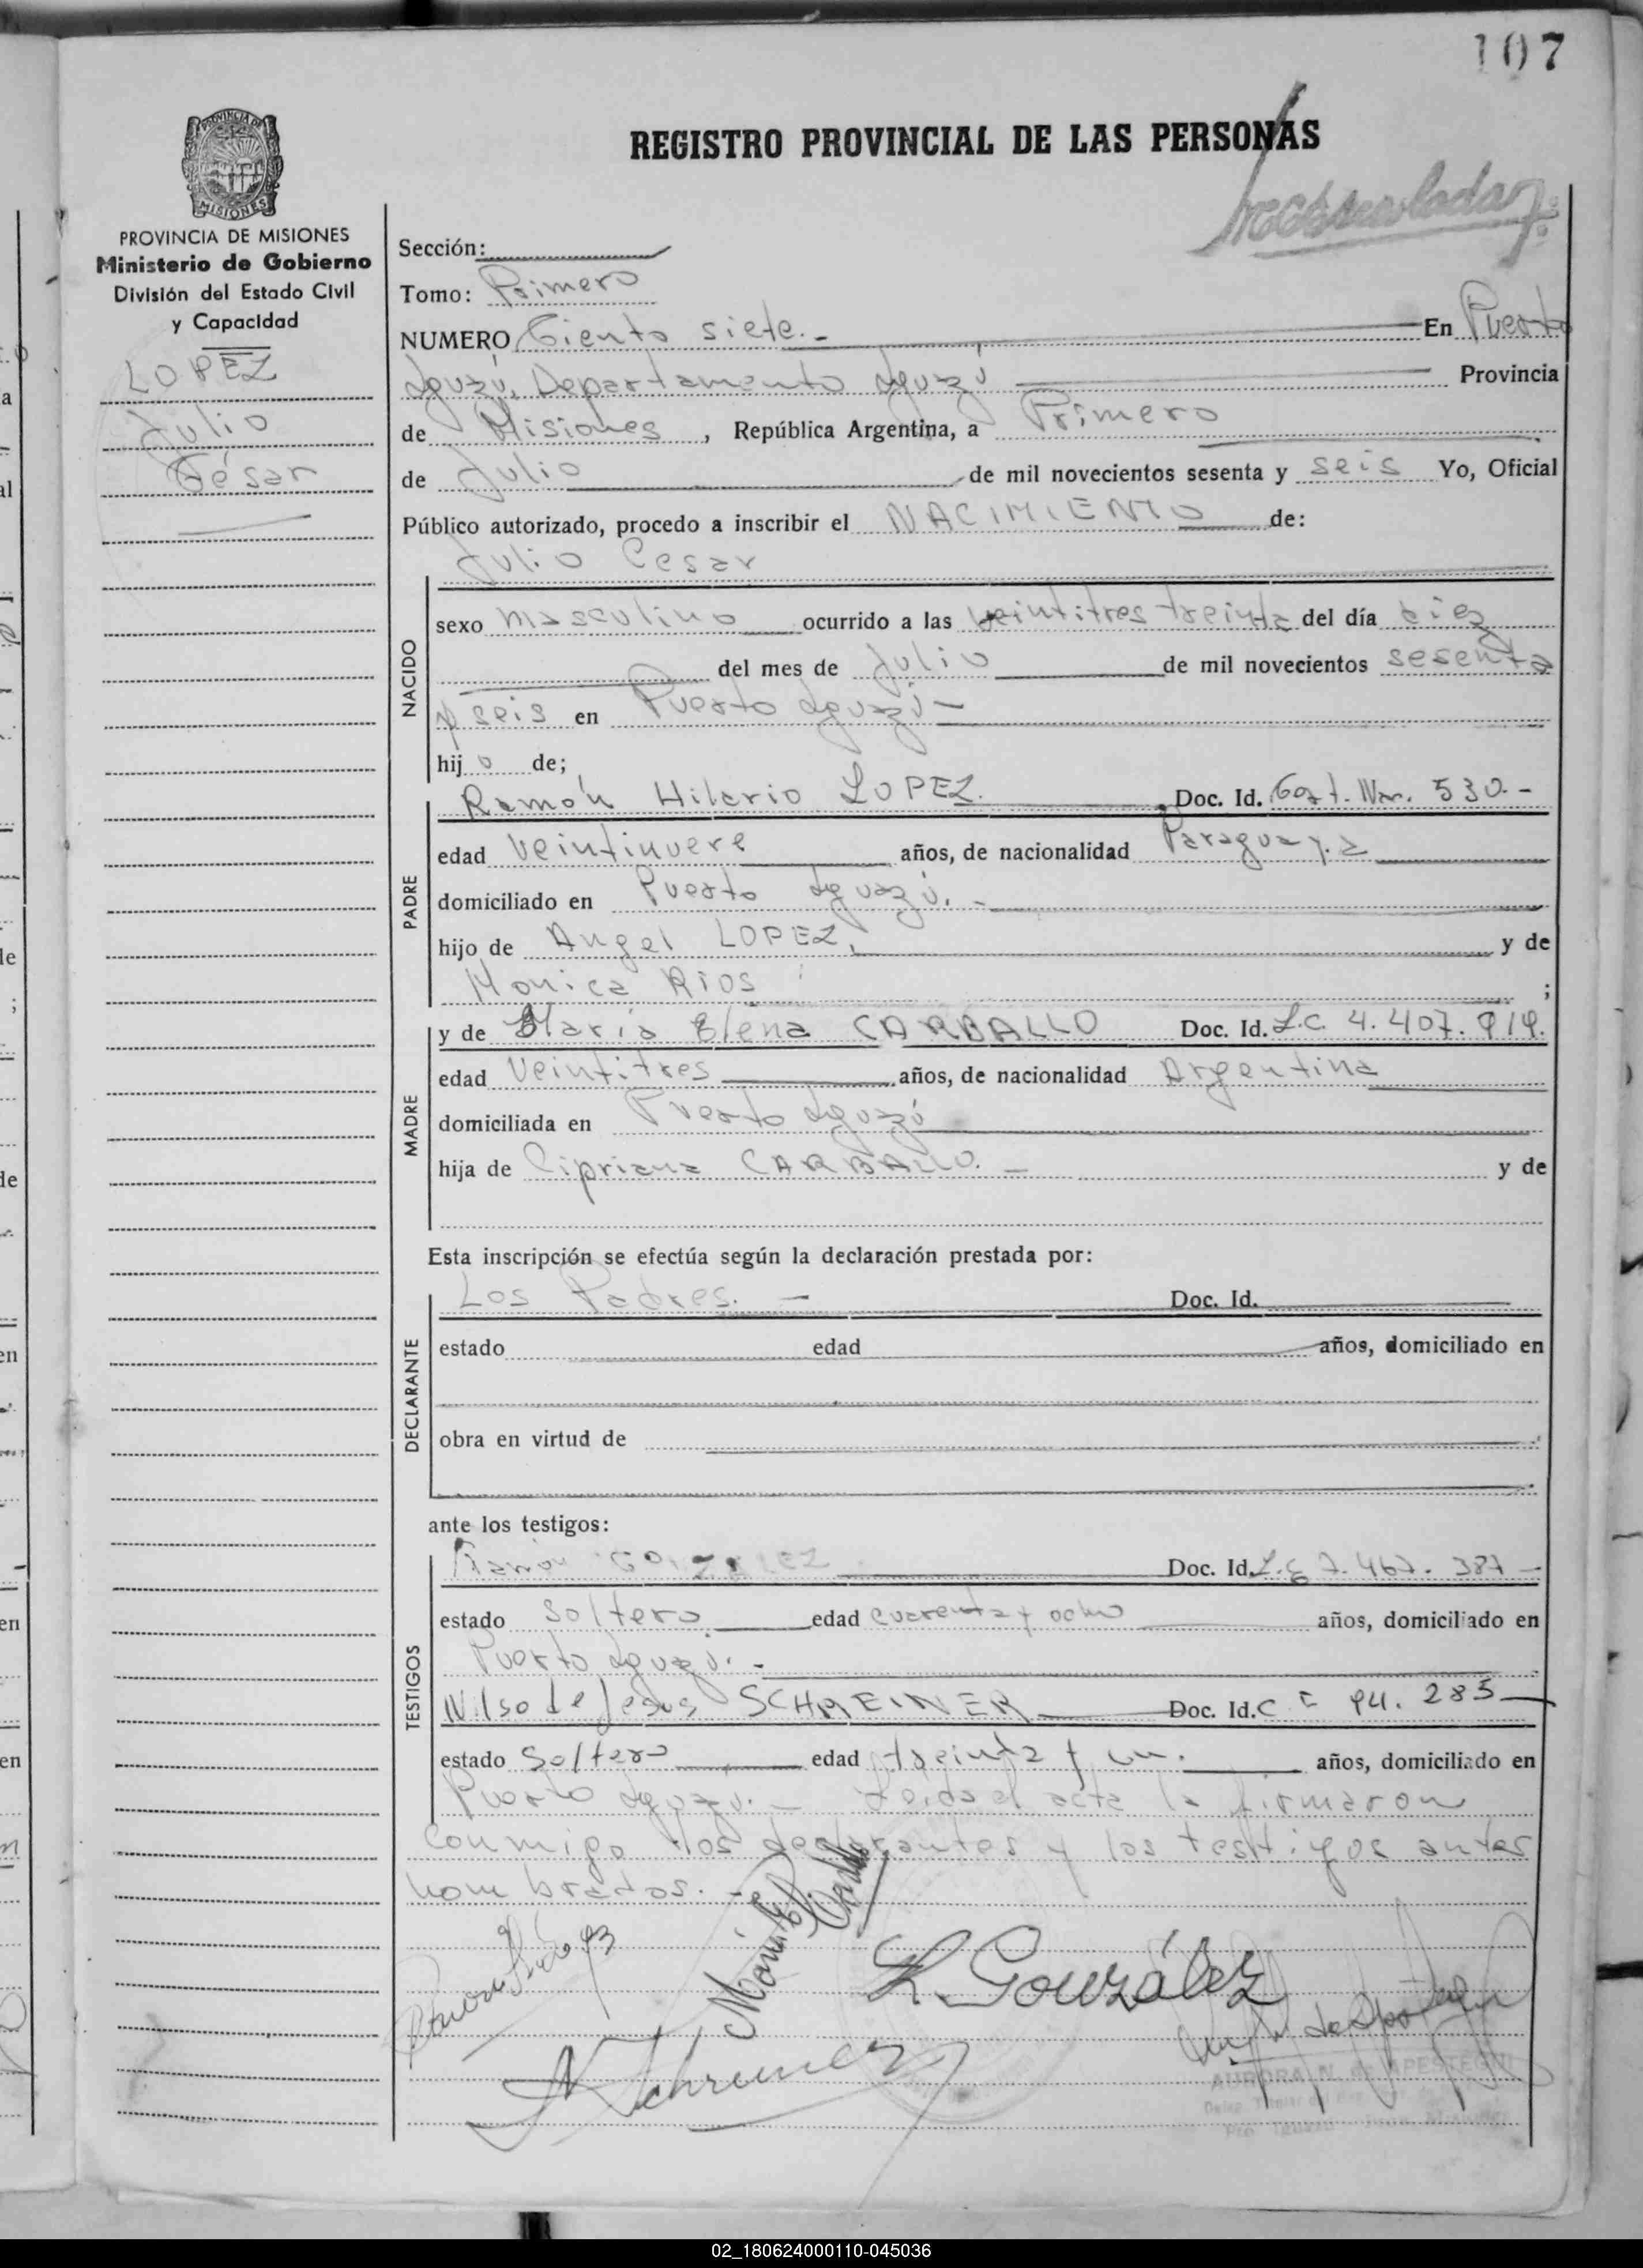 107
REGISTRO PROVINCIAL DE LAS PERSONAS
PROVINCIA DE MISIONES
Ministerio de Gobierno
División del Estado Civil
y Capacidad
LOPEZ
Julio
César
Sección:
Tomo: Primero
NUMERO Ciento siete.- En Puerto
Iguazú, Departamento Iguazú Provincia
de Misiones, República Argentina, a Primero
de Julio de mil novecientos sesenta y seis Yo, Oficial
Público autorizado, procedo a inscribir el NACIMIENTO de:
Julio Cesar
NACIDO
sexo masculino ocurrido a las veintitres treinta del día diez
del mes de Julio de mil novecientos sesenta
y seis en Puerto Iguazú-
hijo de;
PADRE
Ramón Hilario LOPEZ. Doc. Id. 530.-
edad veintinueve años, de nacionalidad Paraguaya
domiciliado en Puerto Iguazú.-
hijo de Angel LOPEZ, y de
Monica RIOS ;
MADRE
y de Maria Elena CARBALLO Doc. Id. L.C. 4.407.914.
edad Veintitres años, de nacionalidad Argentina
domiciliada en Puerto Iguazú
hija de Cipriana CARBALLO.- y de
Esta inscripción se efectúa según la declaración prestada por:
DECLARANTE
Los Padres.- Doc. Id.
estado edad años, domiciliado en
obra en virtud de
ante los testigos:
TESTIGOS
Ramón GONZALEZ Doc. Id. L.E 7.467.387-
estado soltero edad cuarenta y ocho años, domiciliado en
Puerto Iguazú.-
Nilso de Jesus SCHREINER Doc. Id. C E 94.285
estado Soltero edad treinta y un. años, domiciliado en
Puerto Iguazú.- Leida el acta la firmaron
conmigo los declarantes y los testigos antes
nombrados.-
R. González
AURORA N. de APESTEGUI
02_180624000110-045036